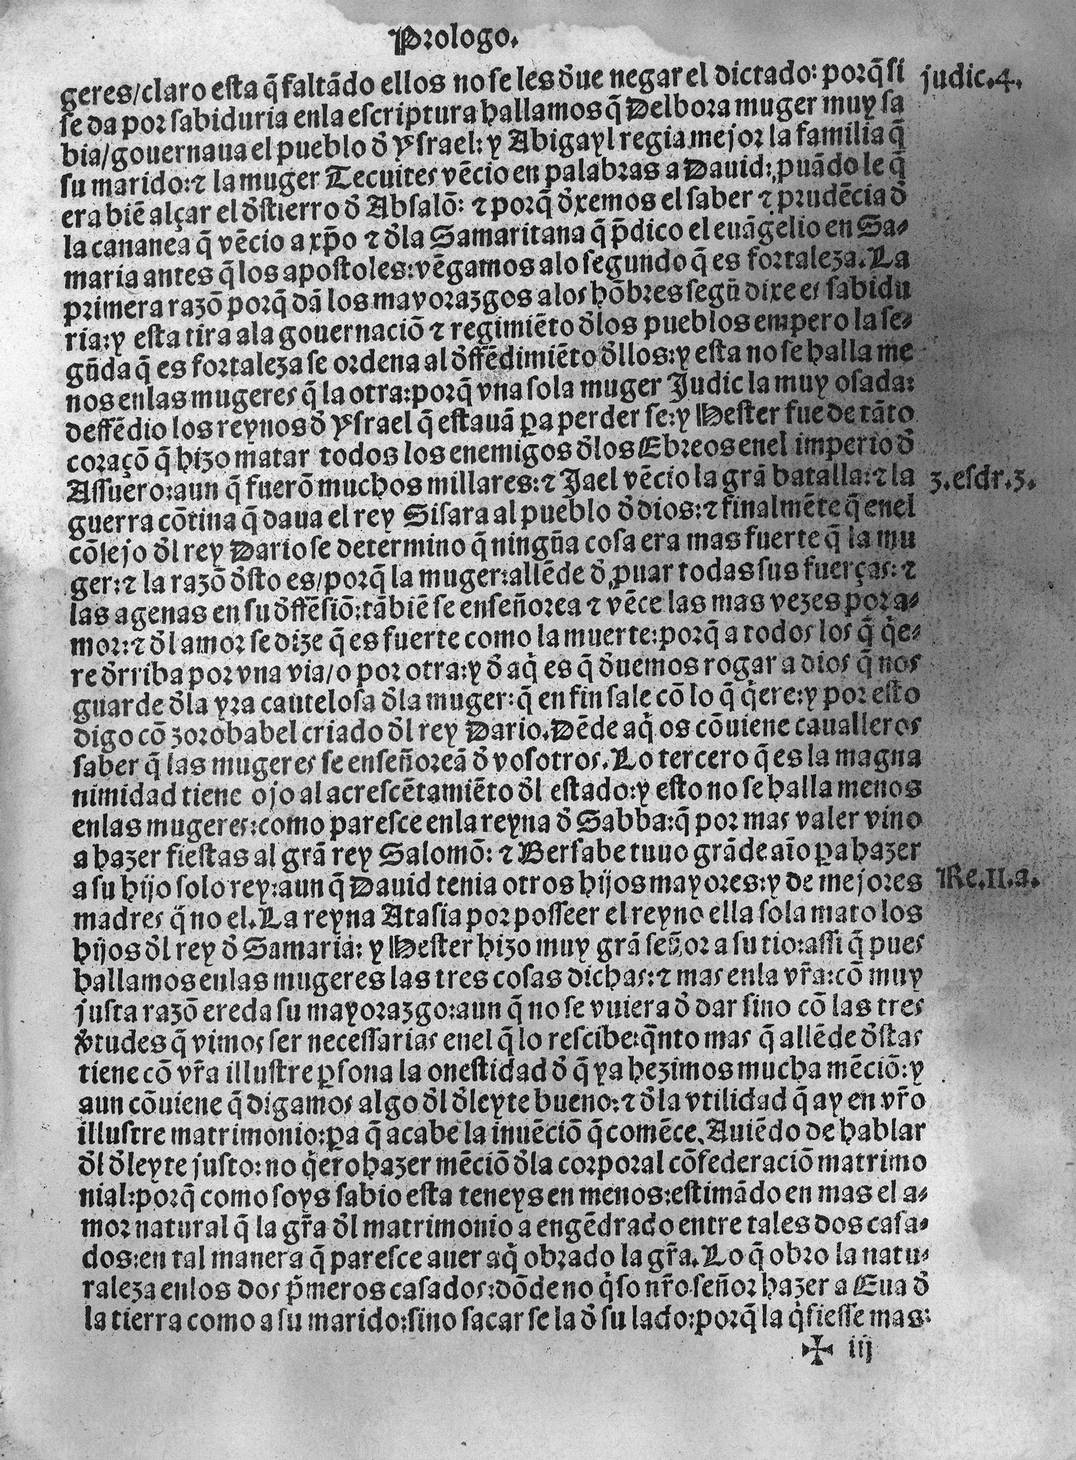 Prologo.
geres/claro esta q̃ faltãdo ellos no se les d̃ue negar el dictado: porq̃ si
judic.4.
se da por sabiduria enla escriptura hallamos q̃ Delbora muger muy sa
bia/gouernaua el pueblo d̃ Ysrael: y Abigayl regia mejor la familia q̃
su marido: ⁊ la muger Tecuites vẽcio en palabras a Dauid: puãdo le q̃
era biẽ alçar el d̃stierro d̃ Absalõ: ⁊ porq̃ d̃xemos el saber ⁊ prudẽcia d̃
la cananea q̃ vẽcio a xp̃o ⁊ d̃la Samaritana q̃ p̃dico el euãgelio en Sa⸗
maria antes q̃ los apostoles: vẽgamos alo segundo q̃ es fortaleza. La
primera razõ porq̃ dã los mayorazgos alos hõbres segũ dixe es sabidu
ria: y esta tira ala gouernaciõ ⁊ regimiẽto d̃los pueblos empero la se⸗
gũda q̃ es fortaleza se ordena al d̃ffẽdimiẽto d̃llos: y esta no se halla me
nos enlas mugeres q̃ la otra: porq̃ vna sola muger Judic la muy osada:
deffẽdio los reynos d̃ Ysrael q̃ estauã ꝑa perder se: y Hester fue de tãto
coraçõ q̃ hizo matar todos los enemigos d̃los Ebreos enel imperio d̃
Assuero: aun q̃ fuerõ muchos millares: ⁊ Jael vẽcio la grã batalla: ⁊ la
3.esdr.3.
guerra cõtina q̃ daua el rey Sisara al pueblo d̃ dios: ⁊ finalmẽte q̃ enel
cõsejo d̃l rey Dario se determino q̃ ningũa cosa era mas fuerte q̃ la mu
ger: ⁊ la razõ d̃sto es/porq̃ la muger: allẽde d̃ ꝓuar todas sus fuerças: ⁊
las agenas en su d̃ffẽsiõ: tãbiẽ se enseñorea ⁊ vẽce las mas vezes por a⸗
mor: ⁊ d̃l amor se dize q̃ es fuerte como la muerte: porq̃ a todos los q̃ q̃e⸗
re d̃rriba por vna via/o por otra: y d̃ aq̃ es q̃ d̃uemos rogar a dios q̃ nos
guarde d̃la yra cautelosa d̃la muger: q̃ en fin sale cõ lo q̃ q̃ere: y por esto
digo cõ zorobabel criado d̃l rey Dario. Dẽde aq̃ os cõuiene caualleros
saber q̃ las mugeres se enseñoreã d̃ vosotros. Lo tercero q̃ es la magna
nimidad tiene ojo al acrescẽtamiẽto d̃l estado: y esto no se halla menos
enlas mugeres: como paresce enla reyna d̃ Sabba: q̃ por mas valer vino
a hazer fiestas al grã rey Salomõ: ⁊ Bersabe tuuo grãde aĩo ꝑa hazer
a su hijo solo rey: aun q̃ Dauid tenia otros hijos mayores: y de mejores
Re.II.a.
madres q̃ no el. La reyna Atalia por posseer el reyno ella sola mato los
hijos d̃l rey d̃ Samaria: y Hester hizo muy grã señor a su tio: assi q̃ pues
hallamos enlas mugeres las tres cosas dichas: ⁊ mas enla vr̃a: cõ muy
justa razõ ereda su mayorazgo: aun q̃ no se vuiera d̃ dar sino cõ las tres
ṽtudes q̃ vimos ser necessarias enel q̃ lo rescibe: q̃nto mas q̃ allẽde d̃stas
tiene cõ vr̃a illustre ꝑsona la onestidad d̃ q̃ ya hezimos mucha mẽciõ: y
aun cõuiene q̃ digamos algo d̃l d̃leyte bueno: ⁊ d̃la vtilidad q̃ ay en vr̃o
illustre matrimonio: ꝑa q̃ acabe la inuẽciõ q̃ comẽce. Auiẽdo de hablar
d̃l d̃leyte justo: no q̃ero hazer mẽciõ d̃la corporal cõfederaciõ matrimo
nial: porq̃ como soys sabio esta teneys en menos: estimãdo en mas el a⸗
mor natural q̃ la gr̃a d̃l matrimonio a engẽdrado entre tales dos casa⸗
dos: en tal manera q̃ paresce auer aq̃ obrado la gr̃a. Lo q̃ obro la natu⸗
raleza enlos dos p̃meros casados: dõde no q̃so nr̃o señor hazer a Eua d̃
la tierra como a su marido: sino sacar se la d̃ su lado: porq̃ la q̃siesse mas:
✠ iij